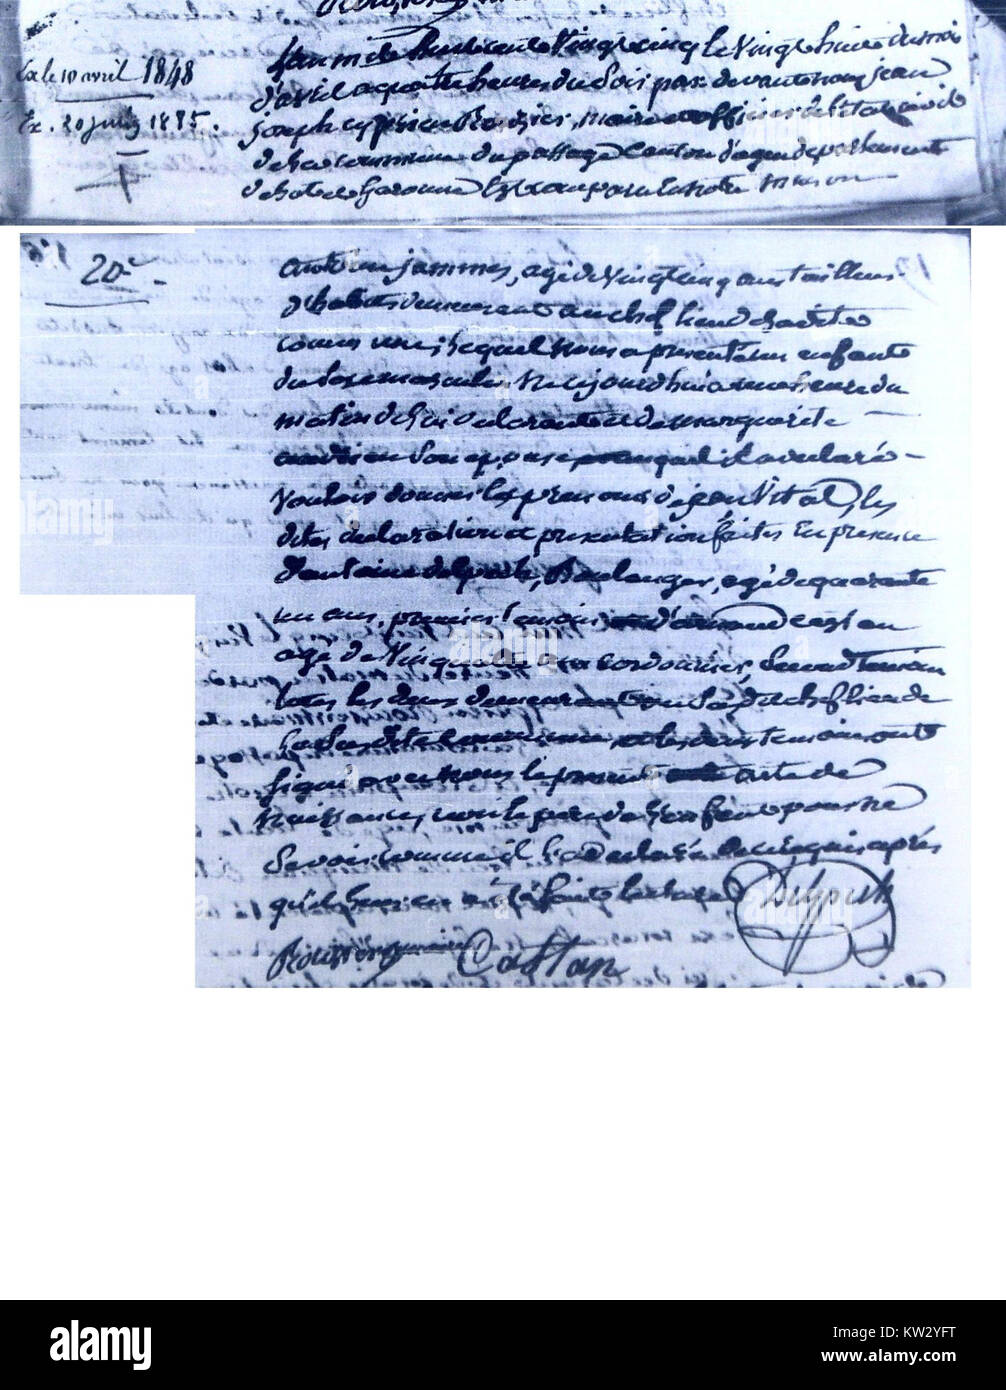 Ex. le 10 avril 1848
Ex. 20 juin 1885.
L'an mil huit cent vingt cinq le vingt huit du mois
d'avril a quatre heures du soir par devant nous jean
joseph maire officier de l'etat civil
de la commune du passage canton d'agen departement
de lot et Garonne est comparu
20e
jammes, agé de vingt cinq ans tailleur
d'habits demeurant au chef lieu de ladite
commune, lequel nous a presenté un enfant
du sexe masculin né cejourd'hui a une heure du
matin de lui declarant et de marguerite
son epouse auquel il a declaré
vouloir donner les prenoms de jean Vital, les
dites declaration et presentation faites en presence
d'antoine delpech, Boulanger, agé de quarante
un ans, premier temoin d'arnaud castan
agé de vingt ans cordonnier, second temoin
tous les deux demeurant au chef lieu de
la susdite commune et les deux temoins ont
signé avec nous le present acte de
naissance, non le pere de l'enfant pour ne
savoir comme il l'a declaré de ce requis après
qu'il en a été fait lecture
Delpech
Castan
alamy
Image ID: KW2YFT
www.alamy.com